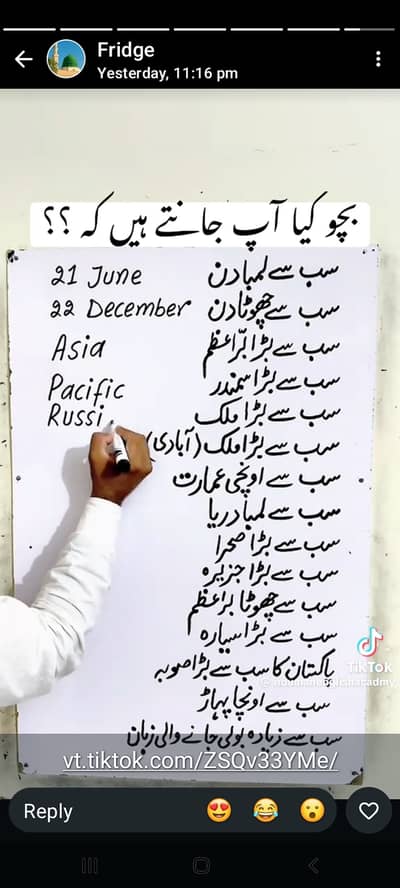 Fridge
Yesterday, 11:16 pm
بچو کیا آپ جانتے ہیں کہ ؟؟
سب سے لمبا دن 21 June
سب سے چھوٹا دن 22 December
سب سے بڑا برّاعظم Asia
سب سے بڑا سمندر Pacific
سب سے بڑا ملک Russi
سب سے بڑا ملک (آبادی)
سب سے اونچی عمارت
سب سے لمبا دریا
سب سے بڑا صحرا
سب سے بڑا جزیرہ
سب سے چھوٹا براعظم
سب سے بڑا سیارہ
پاکستان کا سب سے بڑا صوبہ
سب سے اونچا پہاڑ
سب سے زیادہ بولی جانے والی زبان
TikTok
vt.tiktok.com/ZSQv33YMe/
Reply